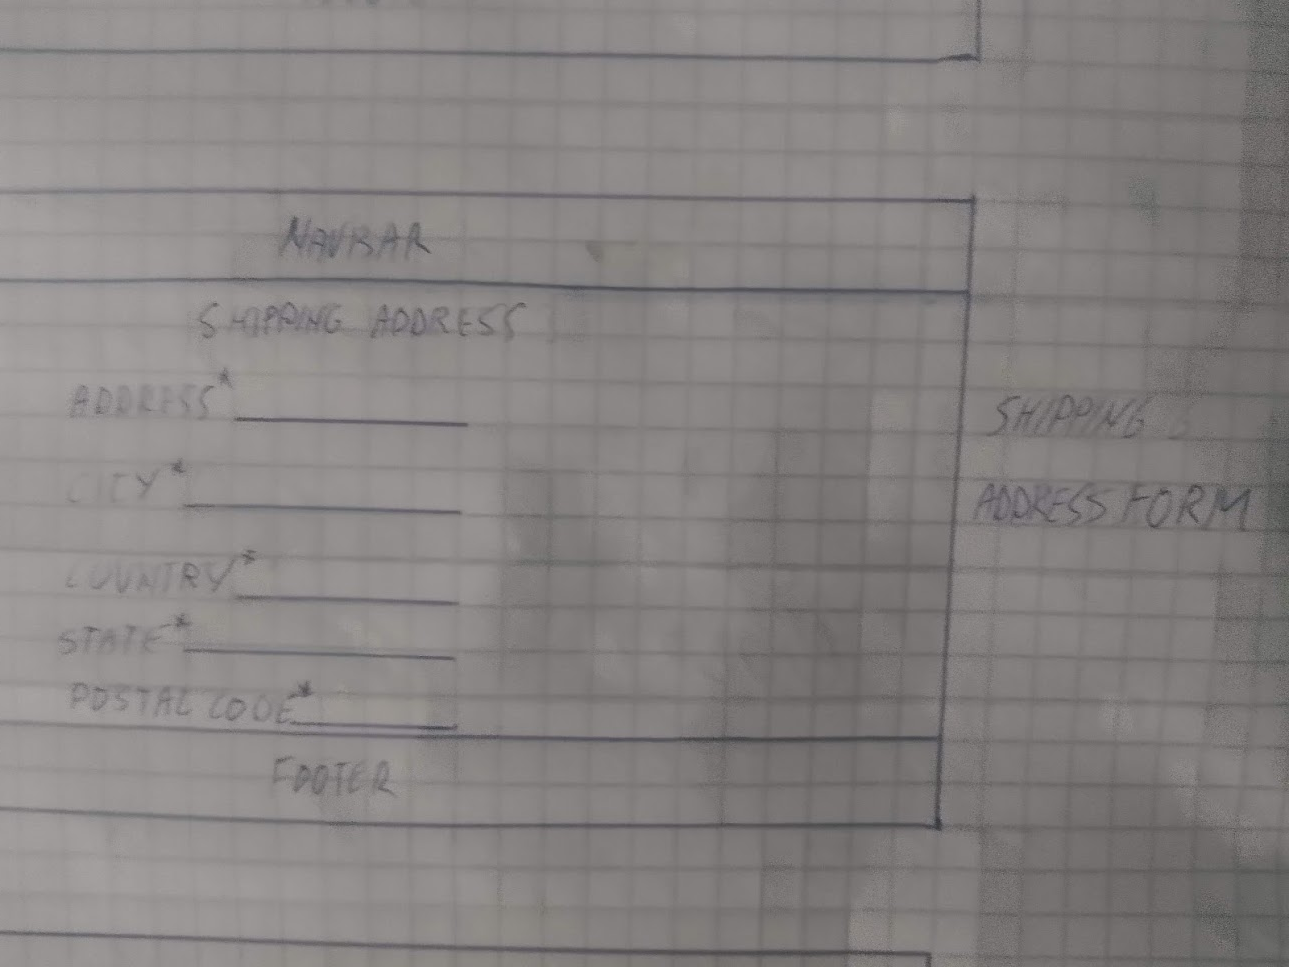 NAVBAR
SHIPPING ADDRESS
ADDRESS*
CITY*
COUNTRY*
STATE*
POSTAL CODE*
FOOTER
SHIPPING
ADDRESS FORM